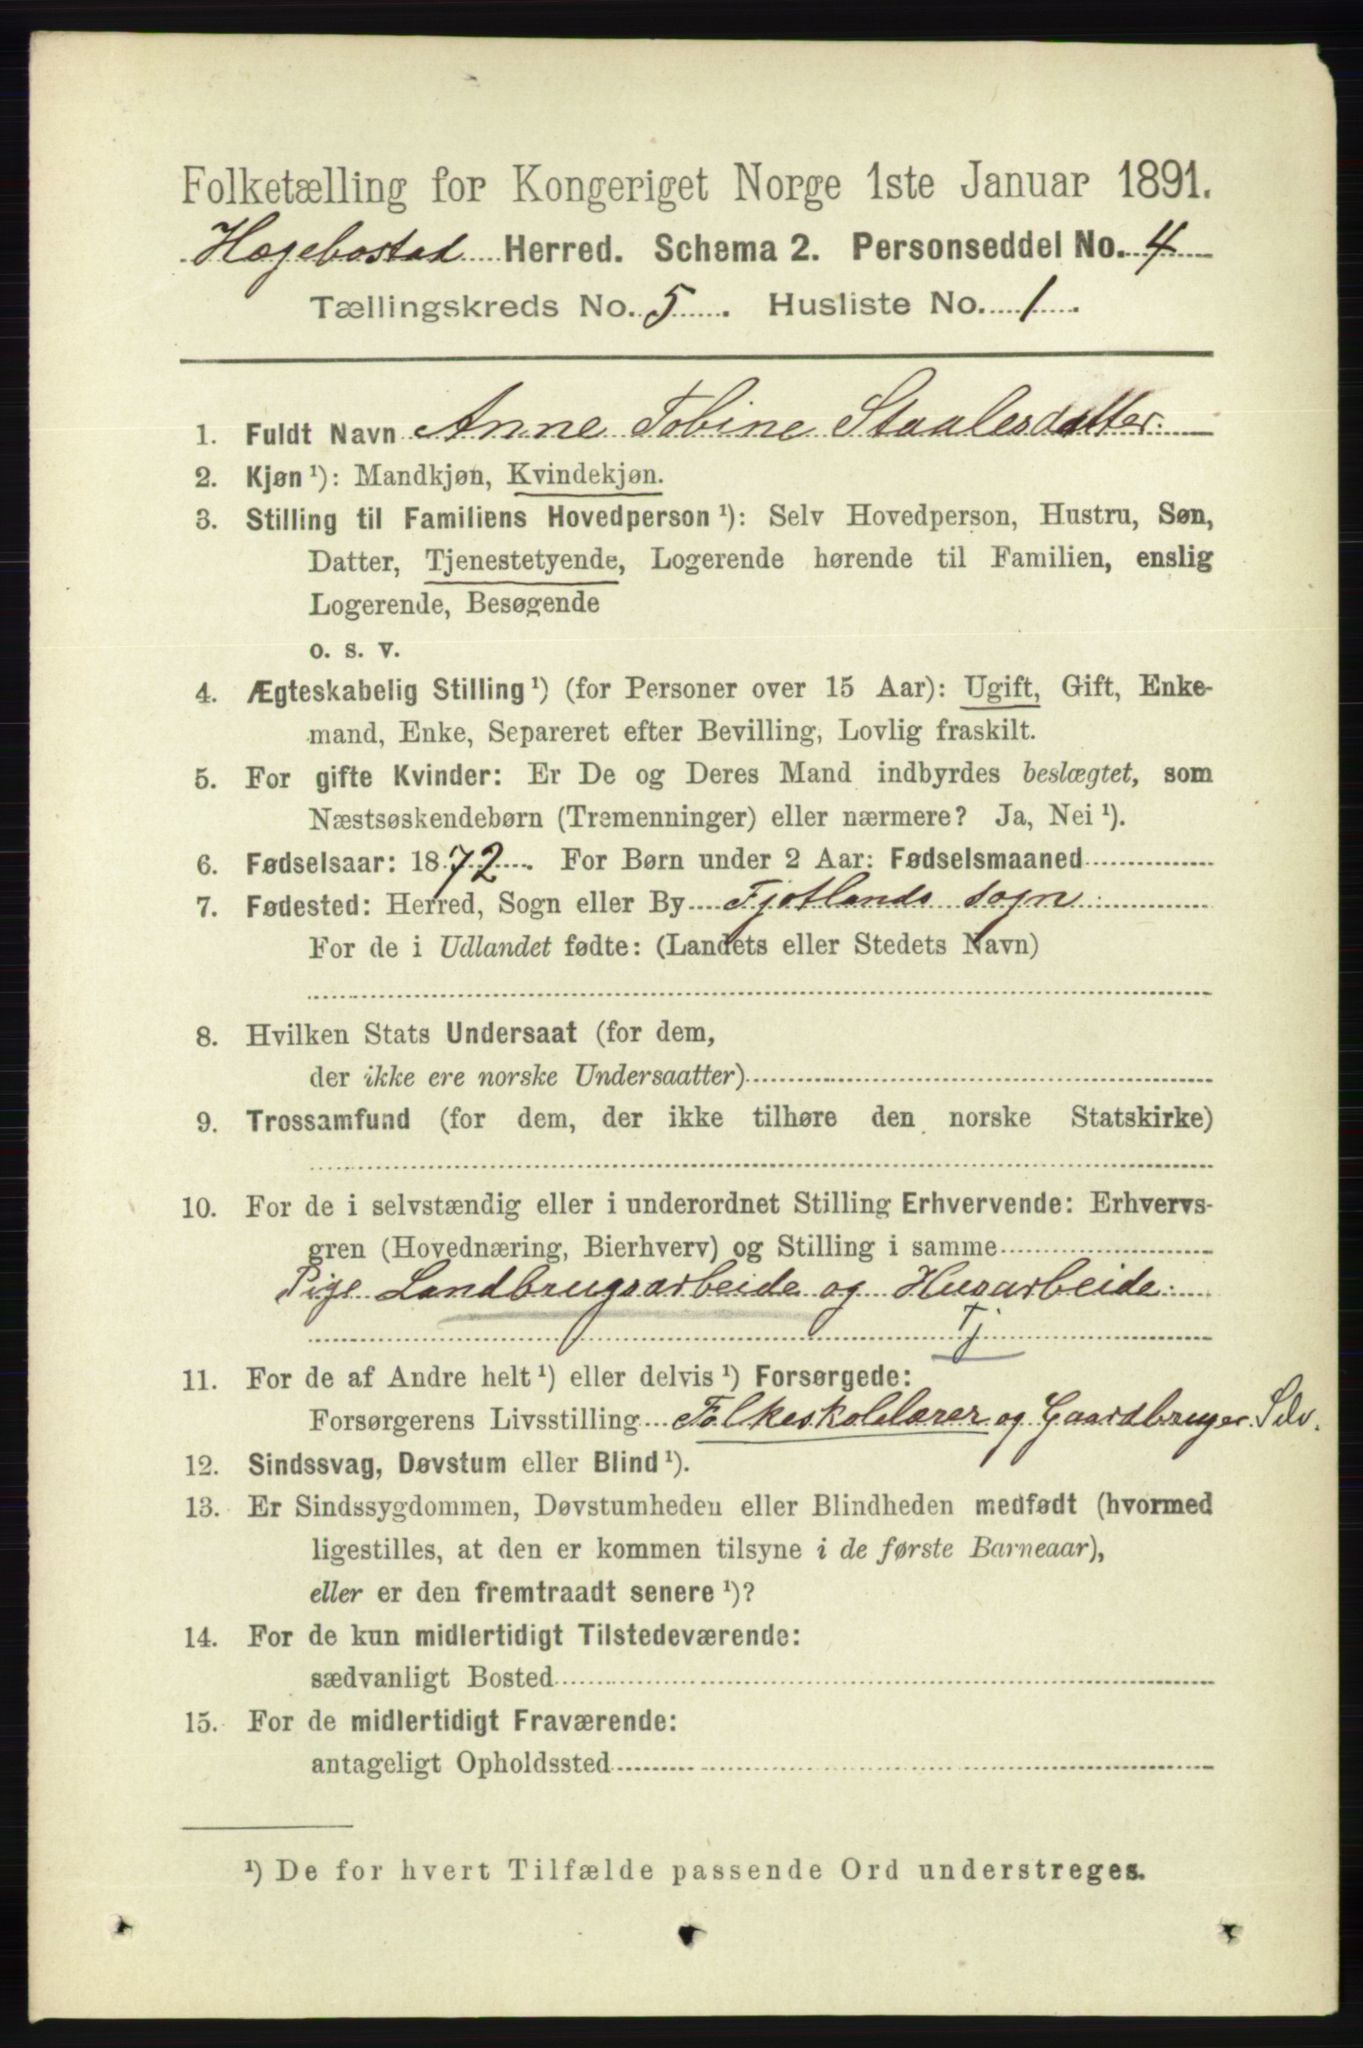 Folketælling for Kongeriget Norge 1ste Januar 1891.
Hægebostad Herred. Schema 2. Personseddel No. 4
Tællingskreds No. 5. Husliste No. 1.
1. Fuldt Navn Anne Tobine Staalesdatter.
2. Kjøn ¹): Mandkjøn, Kvindekjøn.
3. Stilling til Familiens Hovedperson ¹): Selv Hovedperson, Hustru, Søn,
Datter, Tjenestetyende, Logerende hørende til Familien, enslig
Logerende, Besøgende
o. s. v.
4. Ægteskabelig Stilling ¹) (for Personer over 15 Aar): Ugift, Gift, Enke-
mand, Enke, Separeret efter Bevilling, Lovlig fraskilt.
5. For gifte Kvinder: Er De og Deres Mand indbyrdes beslægtet, som
Næstsøskendebørn (Tremenninger) eller nærmere? Ja, Nei ¹).
6. Fødselsaar: 1872. For Børn under 2 Aar: Fødselsmaaned
7. Fødested: Herred, Sogn eller By Fjotlands sogn
For de i Udlandet fødte: (Landets eller Stedets Navn)
8. Hvilken Stats Undersaat (for dem,
der ikke ere norske Undersaatter)
9. Trossamfund (for dem, der ikke tilhøre den norske Statskirke)
10. For de i selvstændig eller i underordnet Stilling Erhvervende: Erhvervs-
gren (Hovednæring, Bierhverv) og Stilling i samme
Pige Landbrugsarbeide og Husarbeide.
Tj
11. For de af Andre helt ¹) eller delvis ¹) Forsørgede:
Forsørgerens Livsstilling Folkeskolelærer og Gaardbruger Selv.
12. Sindssvag, Døvstum eller Blind ¹).
13. Er Sindssygdommen, Døvstumheden eller Blindheden medfødt (hvormed
ligestilles, at den er kommen tilsyne i de første Barneaar),
eller er den fremtraadt senere ¹)?
14. For de kun midlertidigt Tilstedeværende:
sædvanligt Bosted
15. For de midlertidigt Fraværende:
antageligt Opholdssted
¹) De for hvert Tilfælde passende Ord understreges.